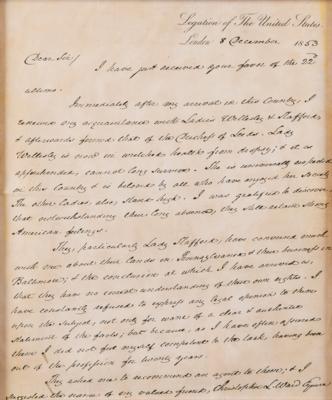 Legation of The United States
London 8 December 1853
Dear Sir/
I have just received your favor of the 22
ultimo.
Immediately after my arrival in this Country, I
renewed my acquaintance with Ladies Wellesley & Stafford,
& afterwards formed that of the Duchess of Leeds. Lady
Wellesley is now in wretched health from dropsy; & it is
apprehended, cannot long survive. She is universally respected
in this Country & is beloved by all who have enjoyed her Society
The other Ladies, also, stand high. I was gratified to discover
that notwithstanding their long absence, they still retain strong
American feelings.
They, particularly Lady Stafford, have conversed much
with me about their Lands in Pennsylvania & their business in
Baltimore; & the conclusion at which I have arrived is,
that they have no correct understanding of their own rights. I
have constantly refused to express any legal opinion to them
upon the Subject, not only for want of a clear & authentic
Statement of the facts; but because, as I have often assured
them I did not feel myself competent to the task, having been
out of the profession for twenty years.
They asked me to recommend an agent to them; & I
suggested the name of my valued friend, Christopher L. Ward Esquire